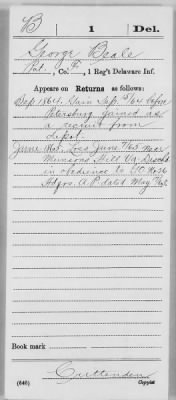 B | 1 | Del.
George Beale
Pvt., Co. F, 1 Reg't Delaware Inf.
Appears on Returns as follows:
Sep 1864. Gain Sep. /64 before
Petersburg joined as
a recruit from
depot.
June 1865. Loss June /65 Near
Munsons Hill Va. Disch'd
in obedience to GO No 26
Hdqrs. A.P. dated May /65
Book mark
Cuttenden
(646) Copyist.